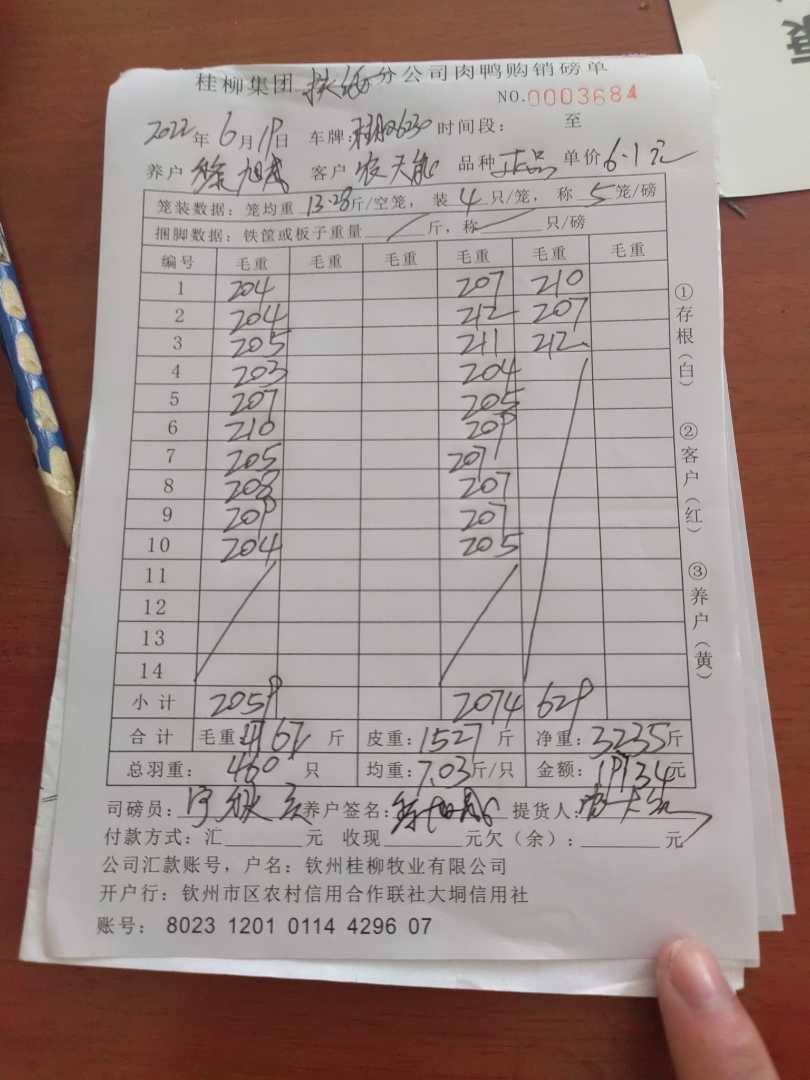 桂柳集团扶绥分公司肉鸭购销磅单
NO.0003684
2022年6月19日 车牌: 时间段: 至
养户 客户 品种 正品 单价 6.1元
笼装数据:笼均重 13.28斤/空笼,装 4 只/笼,称 5 笼/磅
捆脚数据:铁筐或板子重量 斤,称 只/磅
编号 毛重 毛重 毛重 毛重 毛重 毛重
1 204 207 210
2 204 212 207
3 205 211 212
4 203 204
5 207 205
6 210 209
7 205 207
8 208 207
9 209 207
10 204 205
11
12
13
14
小计 2059 2074 629
合计 毛重:4762 斤 皮重:1527 斤 净重:3235斤
总羽重: 460 只 均重:7.03斤/只 金额:19734元
司磅员: 养户签名: 提货人:
付款方式:汇 元 收现 元欠(余): 元
公司汇款账号,户名:钦州桂柳牧业有限公司
开户行:钦州市区农村信用合作联社大垌信用社
账号: 8023 1201 0114 4296 07
①存根(白)
②客户(红)
③养户(黄)